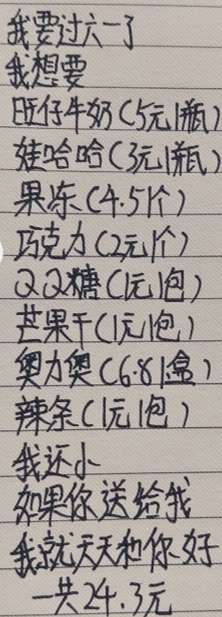 我要过六一了
我想要
旺仔牛奶(5元1瓶)
娃哈哈(3元1瓶)
果冻(4.51个)
巧克力(2元1个)
QQ糖(1元1包)
芒果干(1元1包)
奥力奥(6.81盒)
辣条(1元1包)
我还小
如果你送给我
我就天天和你好
一共24.3元